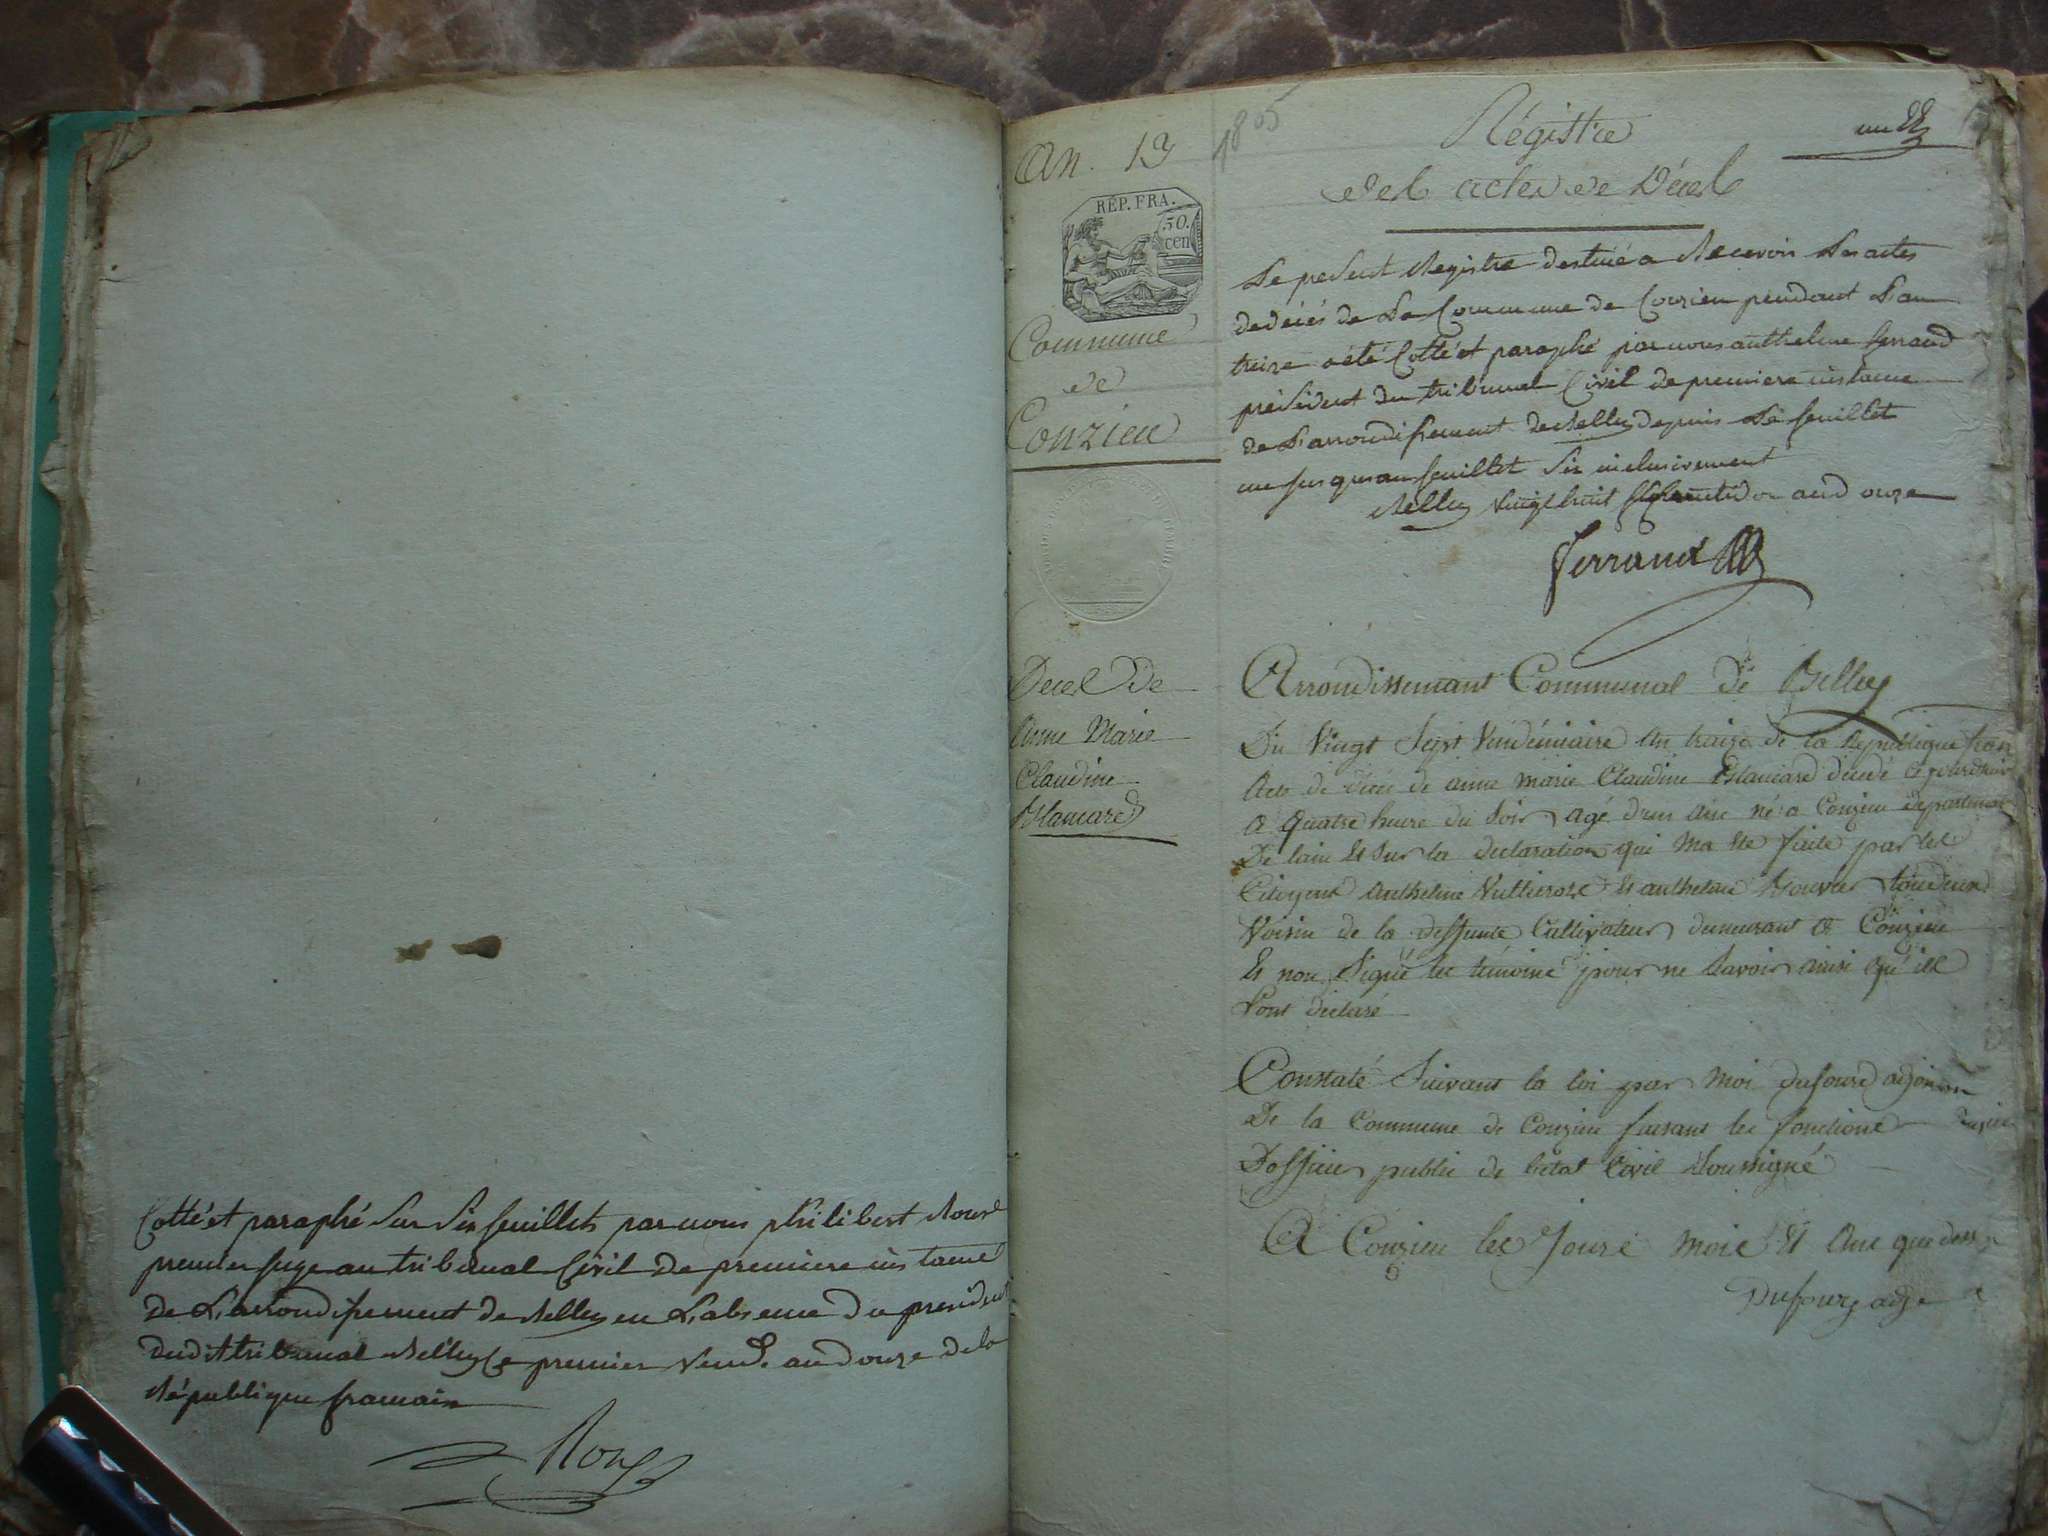 Cotté et paraphé sur six feuillets par nous philibert Roux
premier juge au tribunal Civil de premiere instance
de L'arrondissement de Belley en L'absence du president
dudit tribunal Belley Le premier Vend.e an douze de la
République francaise
Roux
An. 13
1805
REP. FRA.
50.
cen
Commune
de
Conzieu
Registre
des actes de Décès
un
Le present Registre destiné a Recevoir Les actes
de décés de La Commune de Conzieu pendant L'an
treize a été Cotté et paraphé par nous anthelme ferrand
président du tribunal Civil de premiere instance
de L'arrondissement de Belley depuis Le feuillet
un jusques au feuillet Six inclusivement
Belley vingt huit fructidor an d ouze
ferrand
Deces De
Anne Marie
Claudine
Blancard
Arrondissemant Communal de Belley
Du Vingt Sept Vendémiaire an traize de la Republique fran
Acte de décé de anne marie Claudine Blancard décédé cejourdhui
a quatre heure du Soir agé d'un ans né a Conzieu departemant
De lain Et Sur la declaration qui Ma ete faite par les
Citoyens anthelme Et anthelme Bouvier tous deux
Voisin de la deffunte Cultivateur demeurant a Conzieu
Et non Signé les témoins pour ne Savoir ainsi qu'ils
l'ont déclaré
Constaté Suivant la loi par Moi dufour adjoint
De la Commune de Conzieu faisant les fonctions
Dofficier public de l'etat Civil Soussigné
A Conzieu les Jours mois Et ans que dessus
Dufour adj